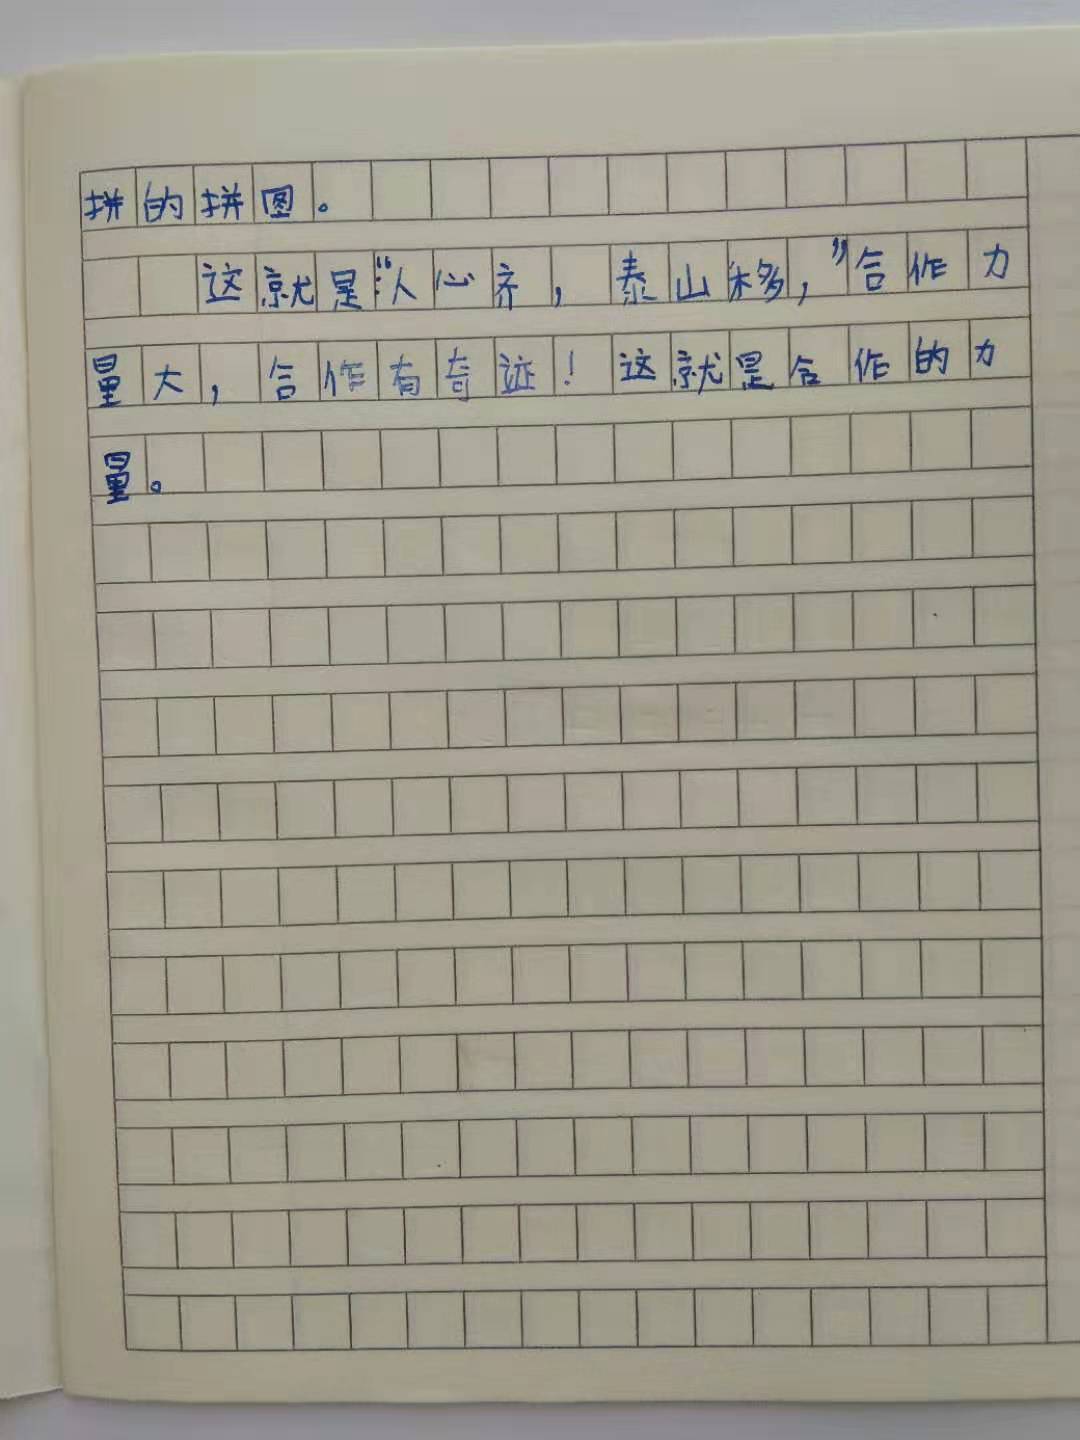 拼的拼图。
这就是“人心齐，泰山移，”合作力
量大，合作有奇迹！这就是合作的力
量。